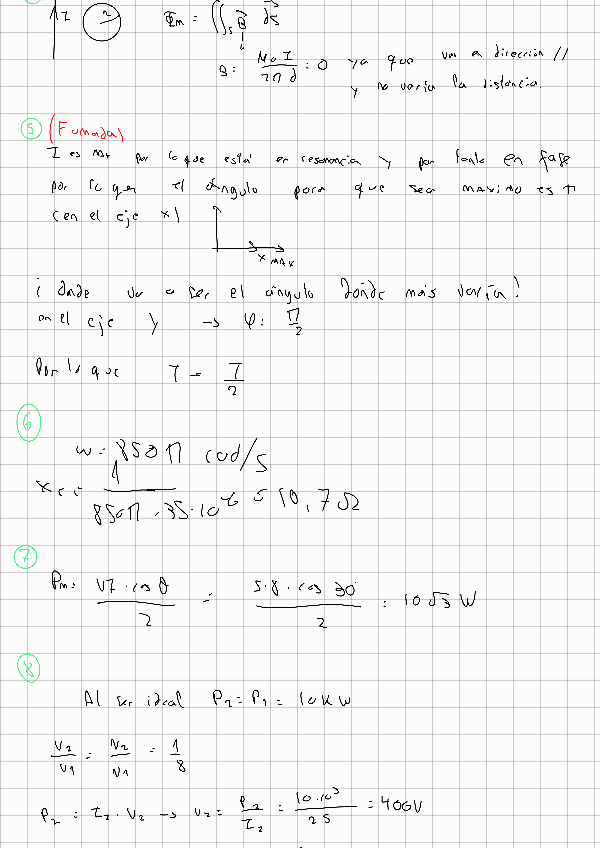 I 2 Φm = ∬s B⃗ ds⃗
B: Mo I / 2π d : 0 ya que va en dirección //
y no varía la distancia.
5 (Fumada)
I es max por lo que está en resonancia y por tanto en fase
por lo que el ángulo para que sea máximo es π
(en el eje x)
x MAX
¿ donde va a ser el ángulo donde más varía?
en el eje y → φ: π/2
Por lo que T = T/2
6
w = 850π rad/s
Xc = 1 / 850π · 35·10^-6 = 10,7 Ω
7
Pm = VI · cos θ / 2 = 5·8 · cos 30 / 2 = 10√3 W
8
Al ser ideal P2 = P1 = 10 kW
V2/V1 = N2/N1 = 1/8
P2 = I2 · V2 → V2 = P2/I2 = 10·10³/25 = 400V